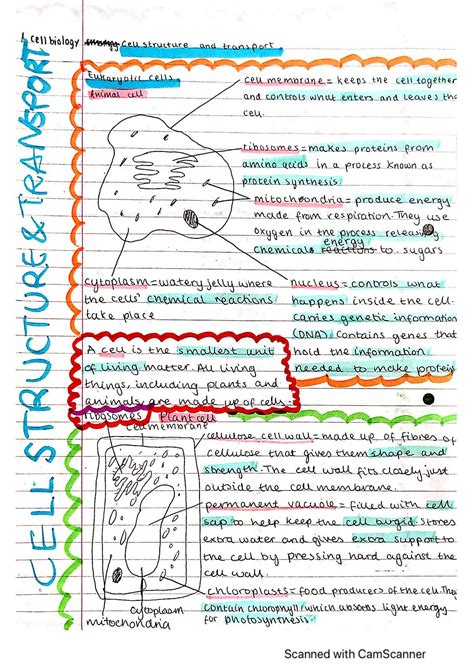 1 cell biology energy cell structure and transport
CELL STRUCTURE & TRANSPORT
Eukaryotic cells
Animal cell
cell membrane = keeps the cell together
and controls what enters and leaves the
cell.
ribosomes = makes proteins from
amino acids in a process known as
protein synthesis
mitochondria = produce energy
made from respiration. They use
oxygen in the process releasing
energy
chemicals reactions to sugars
cytoplasm = watery jelly where
the cells' chemical reactions
take place
nucleus = controls what
happens inside the cell.
carries genetic information
(DNA). Contains genes that
hold the information
needed to make protein
A cell is the smallest unit
of living matter. All living
things, including plants and
animals are made up of cells.
ribosomes
Plant cell
cell membrane
cellulose cell wall = made up of fibres of
cellulose that gives them shape and
strength. The cell wall fits closely just
outside the cell membrane.
permanent vacuole = filled with cell
sap to help keep the cell turgid stores
extra water and gives extra support to
the cell by pressing hard against the
cell wall.
chloroplasts = food producers of the cell. They
contain chlorophyll, which absorbs light energy
for photosynthesis.
cytoplasm
mitochondria
Scanned with CamScanner